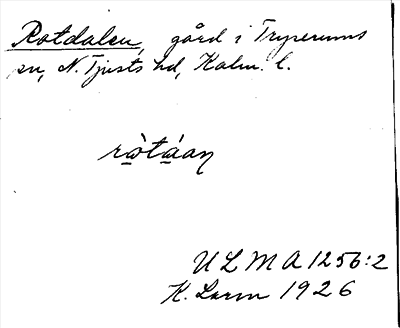 Rotdalen, gård i Tryserums
sn, N. Tjusts hd, Kalm. l.
ròtáan
ULMA 1256:2
K. Larm 1926